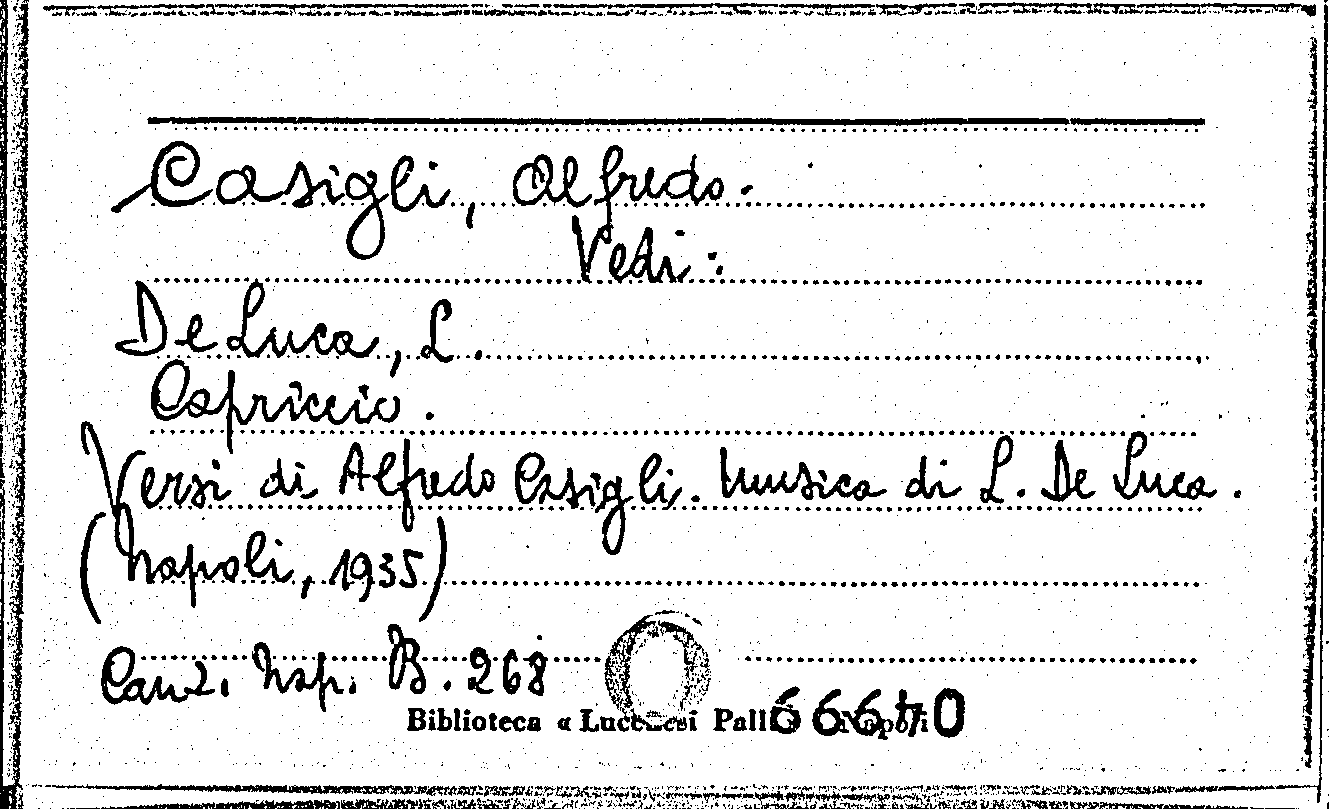 Casigli, Alfredo.
Vedi:
De Luca, L.
Capriccio.
Versi di Alfredo Casigli. Musica di L. De Luca.
(Napoli, 1935)
Canz. Nap. B. 268
Biblioteca « Lucchesi Palli
66640